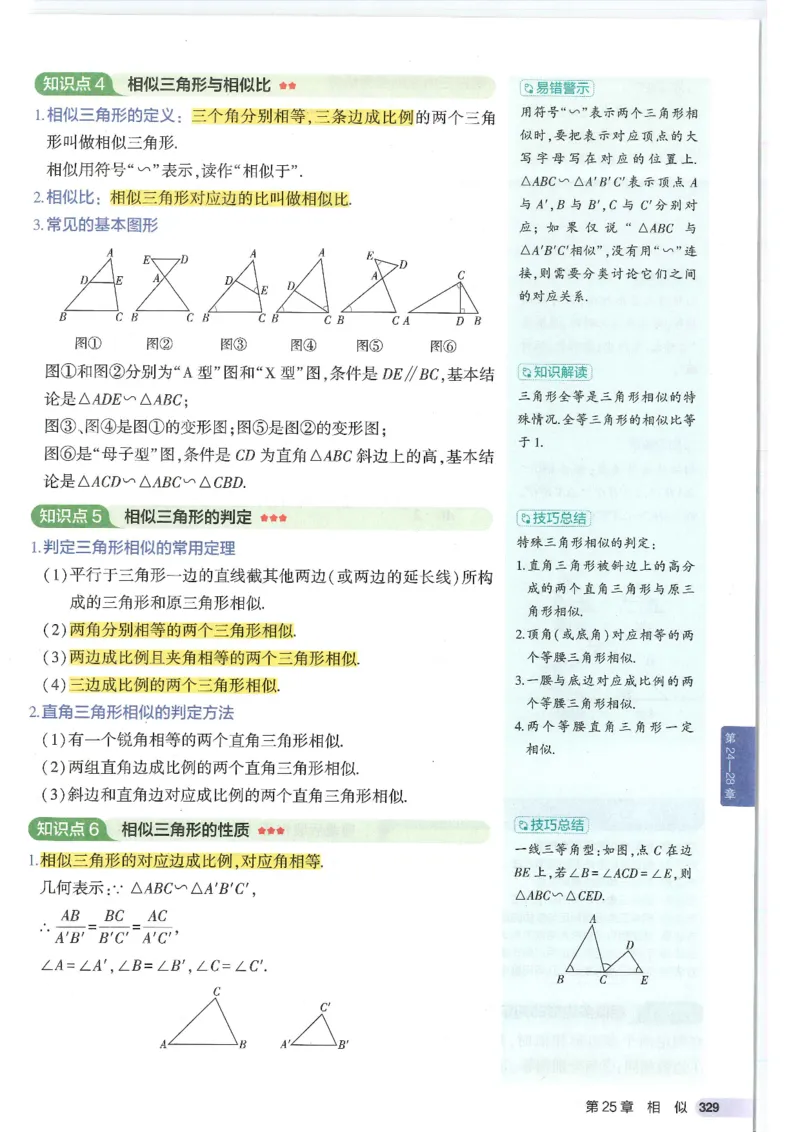 知识点4 相似三角形与相似比 ★★
1.相似三角形的定义：三个角分别相等,三条边成比例的两个三角
形叫做相似三角形.
相似用符号“∽”表示,读作“相似于”.
2.相似比：相似三角形对应边的比叫做相似比.
3.常见的基本图形
A
D E
B C
E D
A
B C
A
D
E
B C
A
D
B C
E
D
A
B C
C
A D B
图① 图② 图③ 图④ 图⑤ 图⑥
图①和图②分别为“A型”图和“X型”图,条件是DE∥BC,基本结
论是△ADE∽△ABC;
图③、图④是图①的变形图;图⑤是图②的变形图;
图⑥是“母子型”图,条件是CD为直角△ABC斜边上的高,基本结
论是△ACD∽△ABC∽△CBD.
知识点5 相似三角形的判定 ★★★
1.判定三角形相似的常用定理
(1)平行于三角形一边的直线截其他两边(或两边的延长线)所构
成的三角形和原三角形相似.
(2)两角分别相等的两个三角形相似.
(3)两边成比例且夹角相等的两个三角形相似.
(4)三边成比例的两个三角形相似.
2.直角三角形相似的判定方法
(1)有一个锐角相等的两个直角三角形相似.
(2)两组直角边成比例的两个直角三角形相似.
(3)斜边和直角边对应成比例的两个直角三角形相似.
知识点6 相似三角形的性质 ★★★
1.相似三角形的对应边成比例,对应角相等.
几何表示:∵ △ABC∽△A′B′C′,
∴ AB/A′B′=BC/B′C′=AC/A′C′,
∠A=∠A′,∠B=∠B′,∠C=∠C′.
C
A B
C′
A′ B′
易错警示
用符号“∽”表示两个三角形相
似时,要把表示对应顶点的大
写字母写在对应的位置上.
△ABC∽△A′B′C′表示顶点A
与A′,B与B′,C与C′分别对
应；如果仅说“△ABC与
△A′B′C′相似”,没有用“∽”连
接,则需要分类讨论它们之间
的对应关系.
知识解读
三角形全等是三角形相似的特
殊情况.全等三角形的相似比等
于1.
技巧总结
特殊三角形相似的判定：
1.直角三角形被斜边上的高分
成的两个直角三角形与原三
角形相似.
2.顶角(或底角)对应相等的两
个等腰三角形相似.
3.一腰与底边对应成比例的两
个等腰三角形相似.
4.两个等腰直角三角形一定
相似.
技巧总结
一线三等角型:如图,点C在边
BE上,若∠B=∠ACD=∠E,则
△ABC∽△CED.
A
D
B C E
第24—28章
第25章 相 似 329